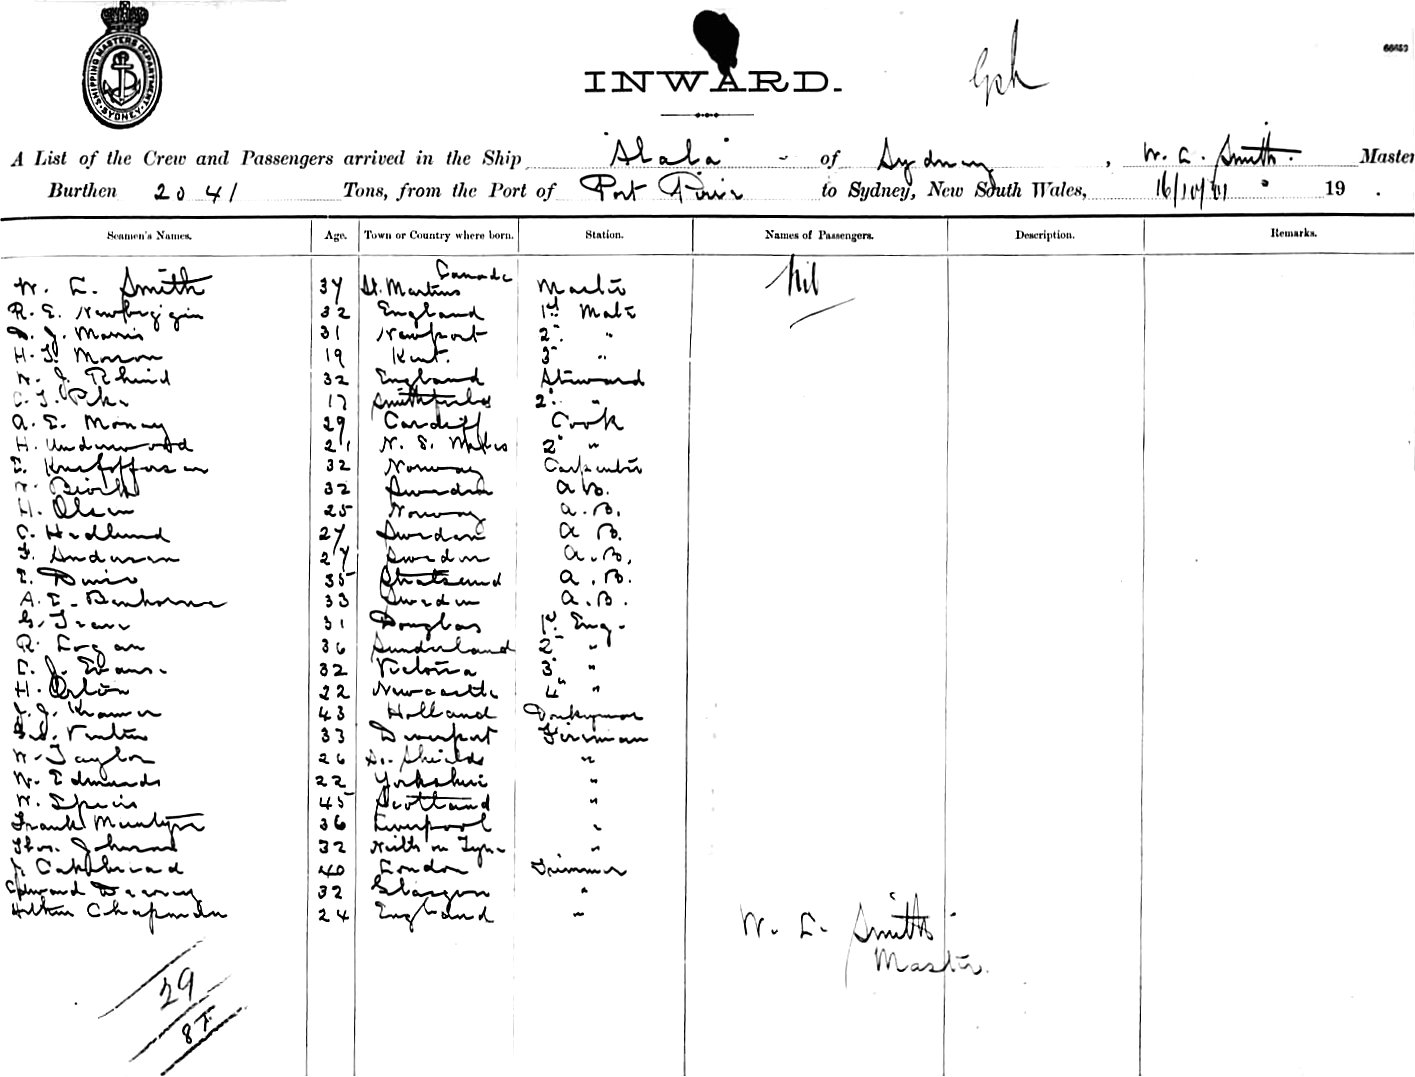 SHIPPING MASTERS DEPARTMENT SYDNEY
66652
INWARD.
A List of the Crew and Passengers arrived in the Ship of Sydney, W. E. Smith. Master
Burthen 2041 Tons, from the Port of Port Pirie to Sydney, New South Wales, 16/10/01 19 .
Seamen's Names. Age. Town or Country where born. Station. Names of Passengers. Description. Remarks.
W. E. Smith 37 St. Martins Canada Master Nil
R. E. Newbiggin 32 England 1st Mate
J. Morris 31 Newport 2" "
H. Morson 19 Kent. 3" "
W. J. Rhind 32 England Steward
17 Smithfield 2" "
A. E. 29 Cardiff Cook
H. Underwood 21 N. S. Wales 2" "
Kristoffersen 32 Norway Carpenter
Biork 32 Sweden A B.
H. Olsen 25 Norway A. B.
C. Hedlund 27 Sweden A B.
F. Andersen 27 Sweden A. B.
E. 35 Stralsund A. B.
A. E. 33 Sweden A. B.
31 Douglas 1st Eng.
R. Logan 36 Sunderland 2" "
E. J. Evans. 32 Victoria 3" "
H. Orton 22 Newcastle 4" "
J. J. Kramer 43 Holland Donkeyman
33 Devenport Fireman
W. Taylor 26 So. Shields "
W. Edmunds 22 Yorkshire "
W. Speirs 45 Scotland "
Frank McIntyre 36 Liverpool "
Thos. Johnson 32 on Tyne "
J. Cakebread 40 London Trimmer
Edward 32 Glasgow "
Chapman 24 England "
W. E. Smith
Master.
29
8